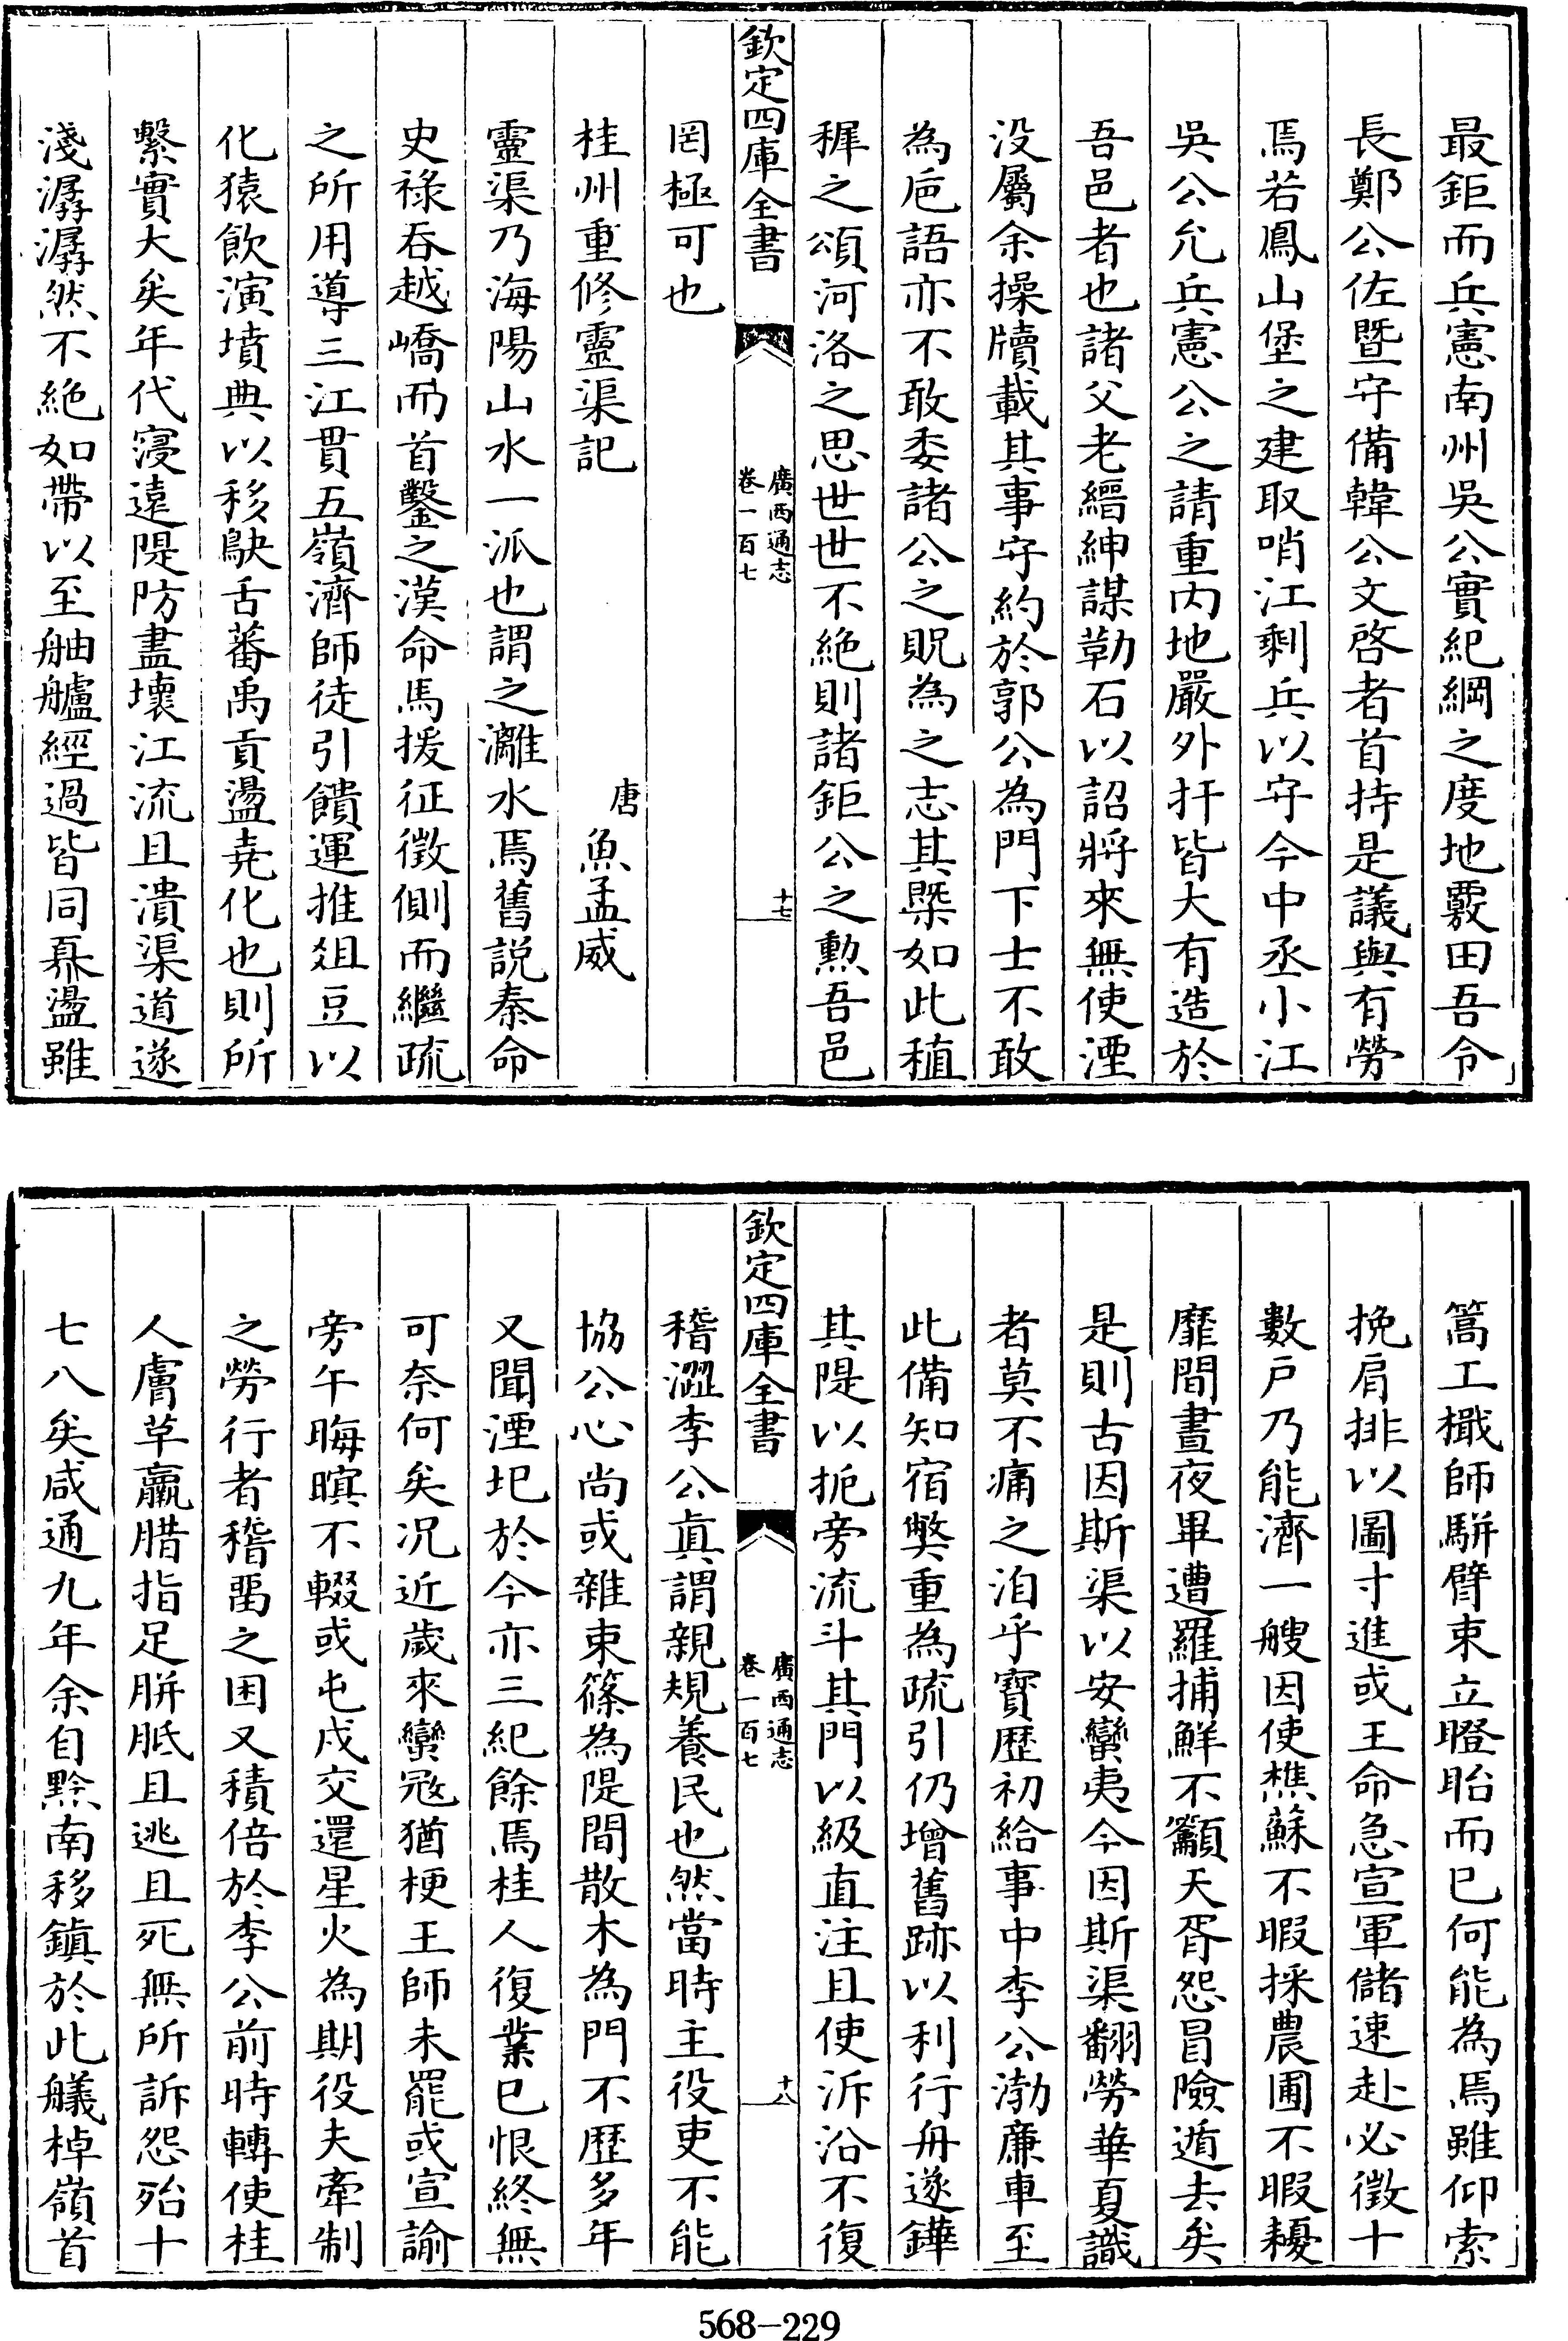 最鉅而兵憲南州吳公實紀綱之度地覈田吾令
長鄭公佐暨守備韓公文啓者首持是議與有勞
焉若鳳山堡之建取哨江剩兵以守今中丞小江
吳公允兵憲公之請重内地嚴外扞皆大有造於
吾邑者也諸父老縉紳謀勒石以詔將來無使湮
没屬余操牘載其事守約於郭公為門下士不敢
為巵語亦不敢委諸公之貺為之志其槩如此植
穉之頌河洛之思世世不絶則諸鉅公之勲吾邑
欽定四庫全書
廣西通志
卷一百七
十七
罔極可也
桂州重修靈渠記
唐魚孟威
靈渠乃海陽山水一派也謂之灕水焉舊説秦命
史禄吞越嶠而首鑿之漢命馬援征徵側而繼疏
之所用導三江貫五嶺濟師徒引饋運推俎豆以
化猿飲演墳典以移鴃舌蕃禹貢盪堯化也則所
繫實大矣年代寖遠隄防盡壞江流且潰渠道遂
淺潺潺然不絶如帶以至舳艫經過皆同奡盪雖
篙工檝師駢臂束立瞪眙而已何能為焉雖仰索
挽肩排以圖寸進或王命急宣軍儲速赴必徵十
數戸乃能濟一艘因使樵蘇不暇採農圃不暇耰
靡間晝夜畢遭羅捕鮮不籲天胥怨冒險遁去矣
是則古因斯渠以安蠻夷今因斯渠翻勞華夏識
者莫不痛之洎乎寳歴初給事中李公渤廉車至
此備知宿弊重為疏引仍增舊跡以利行舟遂鏵
其隄以扼旁流斗其門以級直注且使泝沿不復
欽定四庫全書
廣西通志
卷一百七
十八
稽澀李公真謂親規養民也然當時主役吏不能
協公心尚或雜束篠為隄間散木為門不歴多年
又聞湮圯於今亦三紀餘焉桂人復業已恨終無
可奈何矣况近歲來蠻冦猶梗王師未罷或宣諭
旁午晦暝不輟或屯戍交還星火為期役夫牽制
之勞行者稽畱之困又積倍於李公前時轉使桂
人膚草羸腊指足胼胝且逃且死無所訴怨殆十
七八矣咸通九年余自黔南移鎮於此艤棹嶺首
568-229